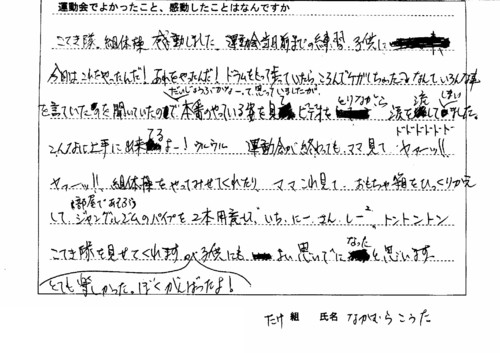 運動会でよかったこと、感動したことはなんですか
こてき隊、組体操 感動しました。運動会当日前までの練習、子供に
今日はこれやったんだ！あれをやったんだ！ドラムをもって歩いていたら、ころんでケガしちゃった。なんて、いろんな事
だいじょうぶかなーって、思っていましたが、
を言っていたのを聞いていたので、本番のやっている姿を見 ビデオを とりながら 涙を流してしまいました。
こんなに上手に出来てるよー！ウルウル 運動会が終わっても、ママ見て ヤァーッ!!
ドドドドドド
ヤァーッ!! 組体操をやってみせてくれたり、ママこれ見て、おもちゃ箱をひっくりかえ
して、部屋であそぶジャングルジムのパイプを2本用意して、いち、にー、さん、しー トントントン
こてき隊を見せてくれます。子供にも よい思いでになったと思います。
とても楽しかった。ぼくがんばったよ！
たけ 組 氏名 なかむらこうた